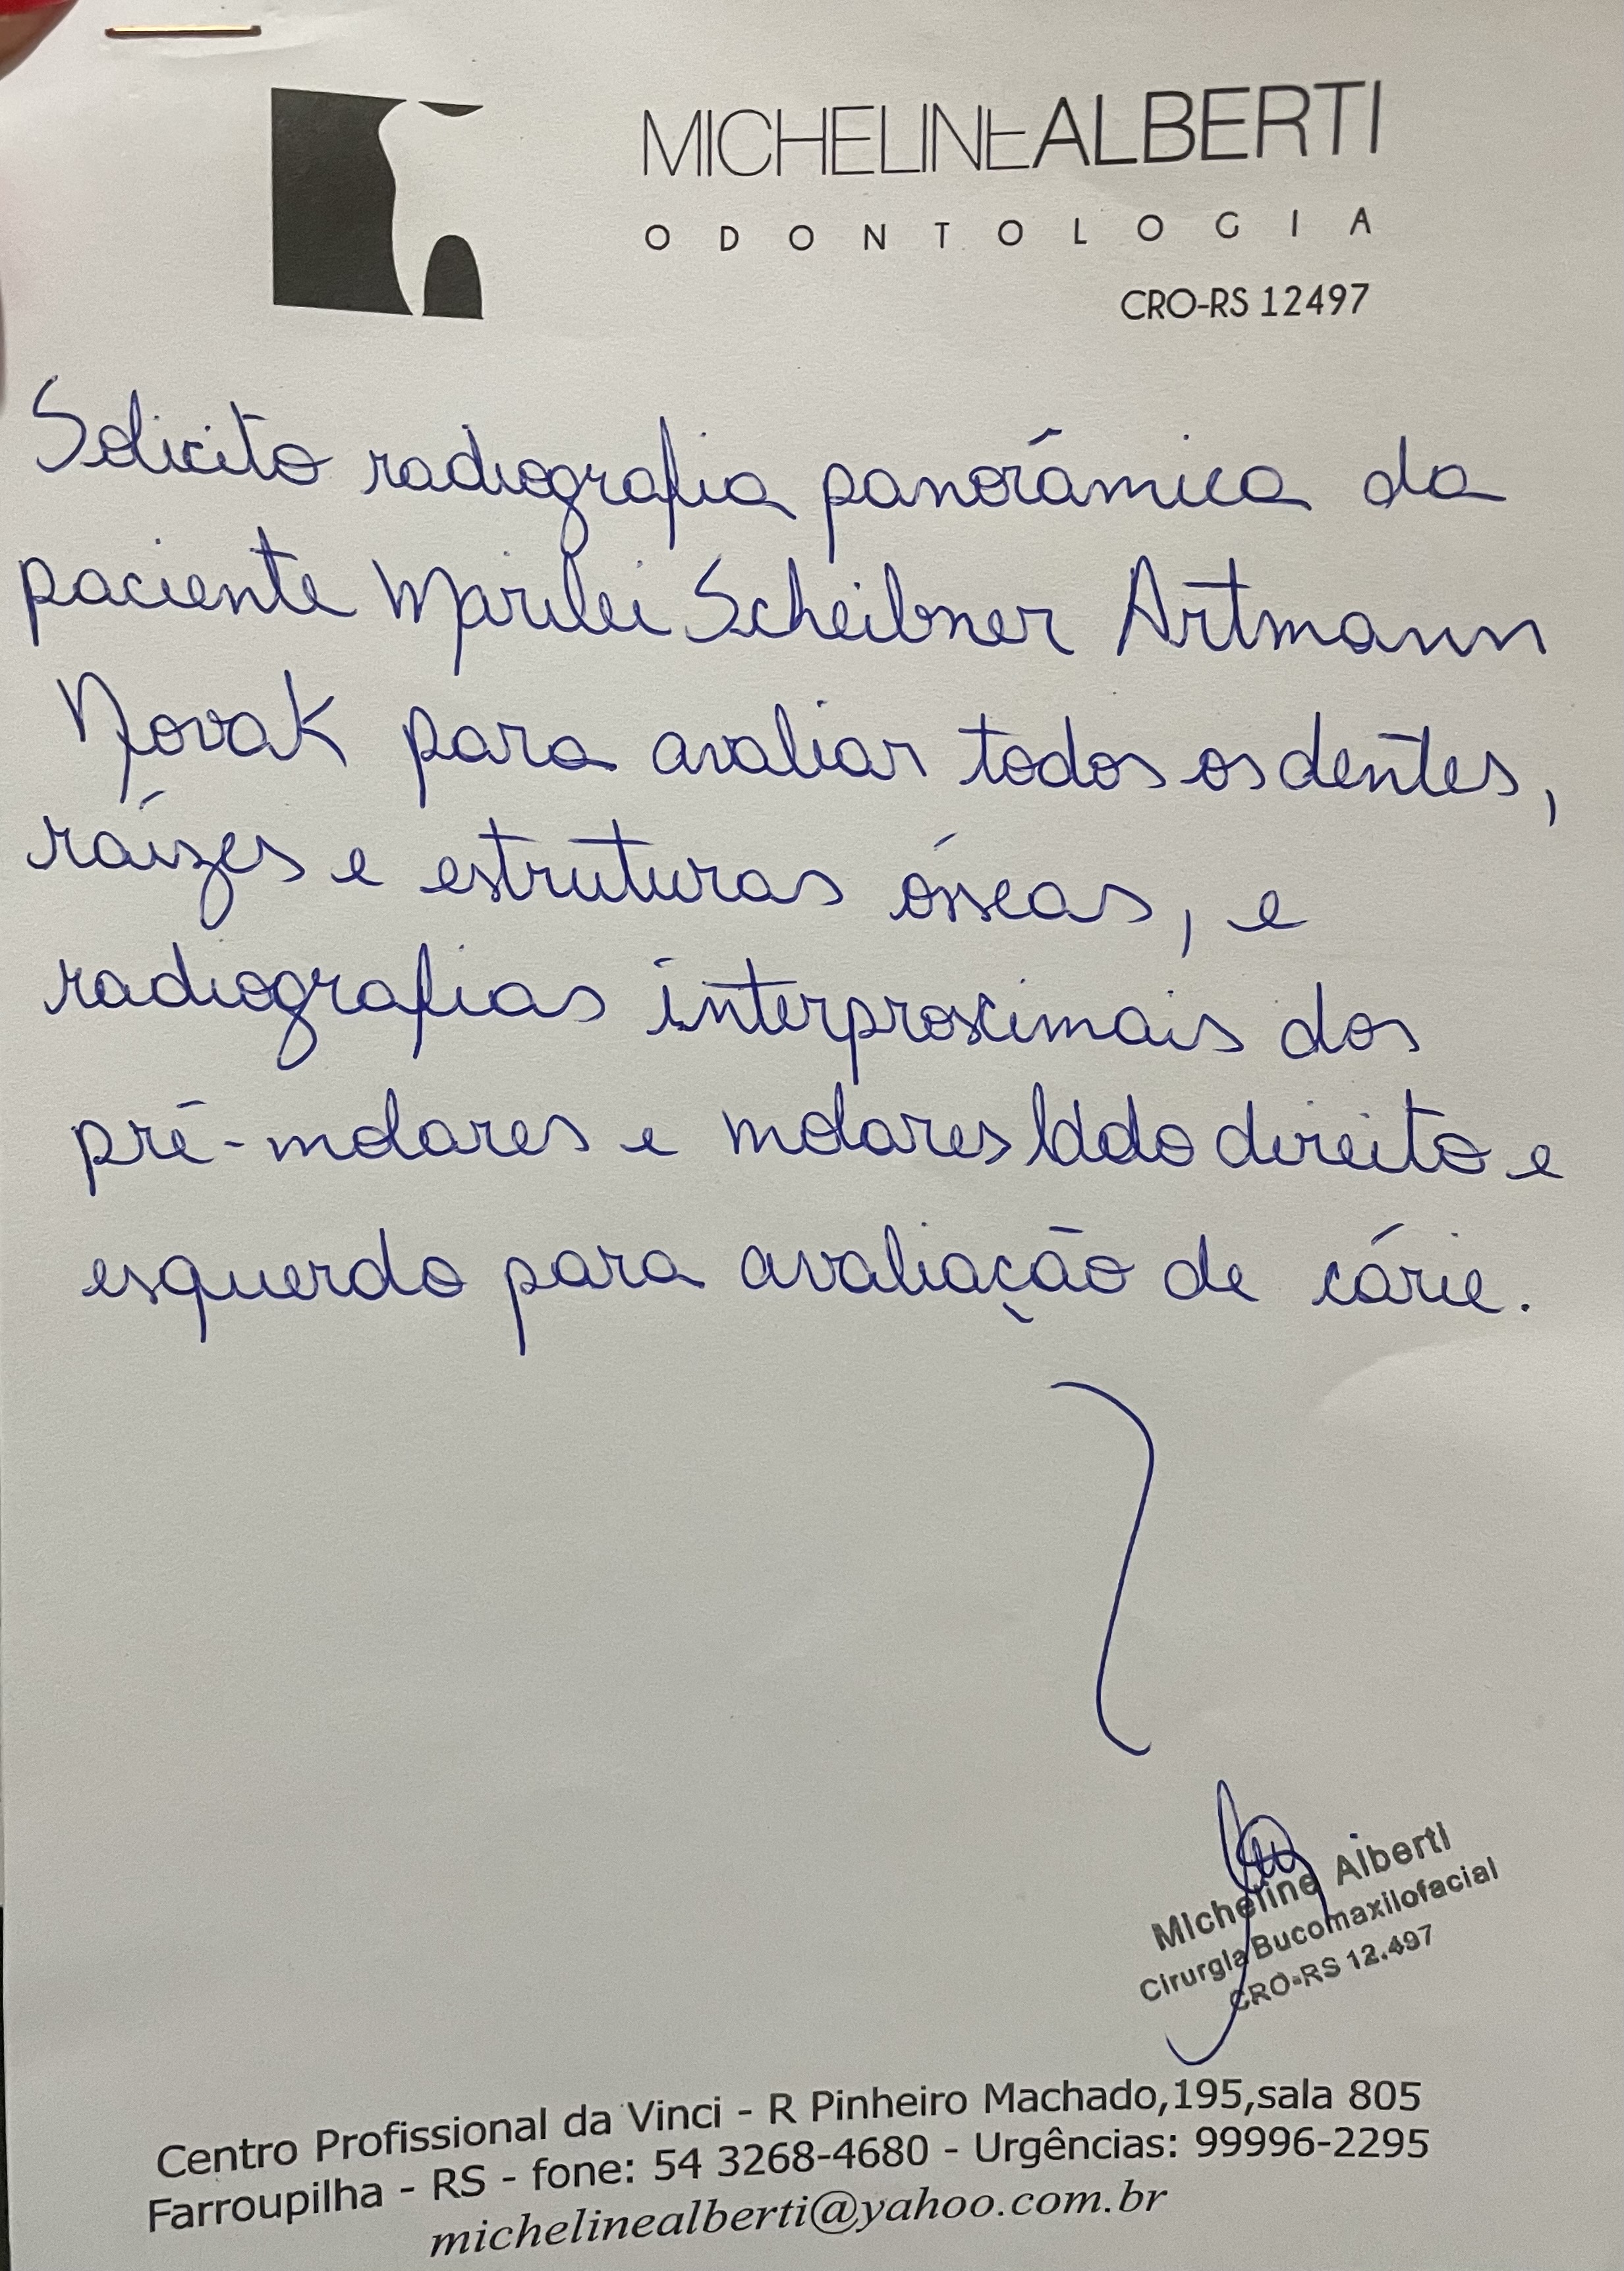 MICHELINEALBERTI
ODONTOLOGIA
CRO-RS 12497
Solicito radiografia panorâmica da
paciente Marilei Scheibner Artmann
Novak para avaliar todos os dentes,
raízes e estruturas ósseas, e
radiografias interproximais dos
pré-molares e molares lado direito e
esquerdo para avaliação de cárie.
Micheline Alberti
Cirurgia Bucomaxilofacial
CRO-RS 12.497
Centro Profissional da Vinci - R Pinheiro Machado,195,sala 805
Farroupilha - RS - fone: 54 3268-4680 - Urgências: 99996-2295
michelinealberti@yahoo.com.br